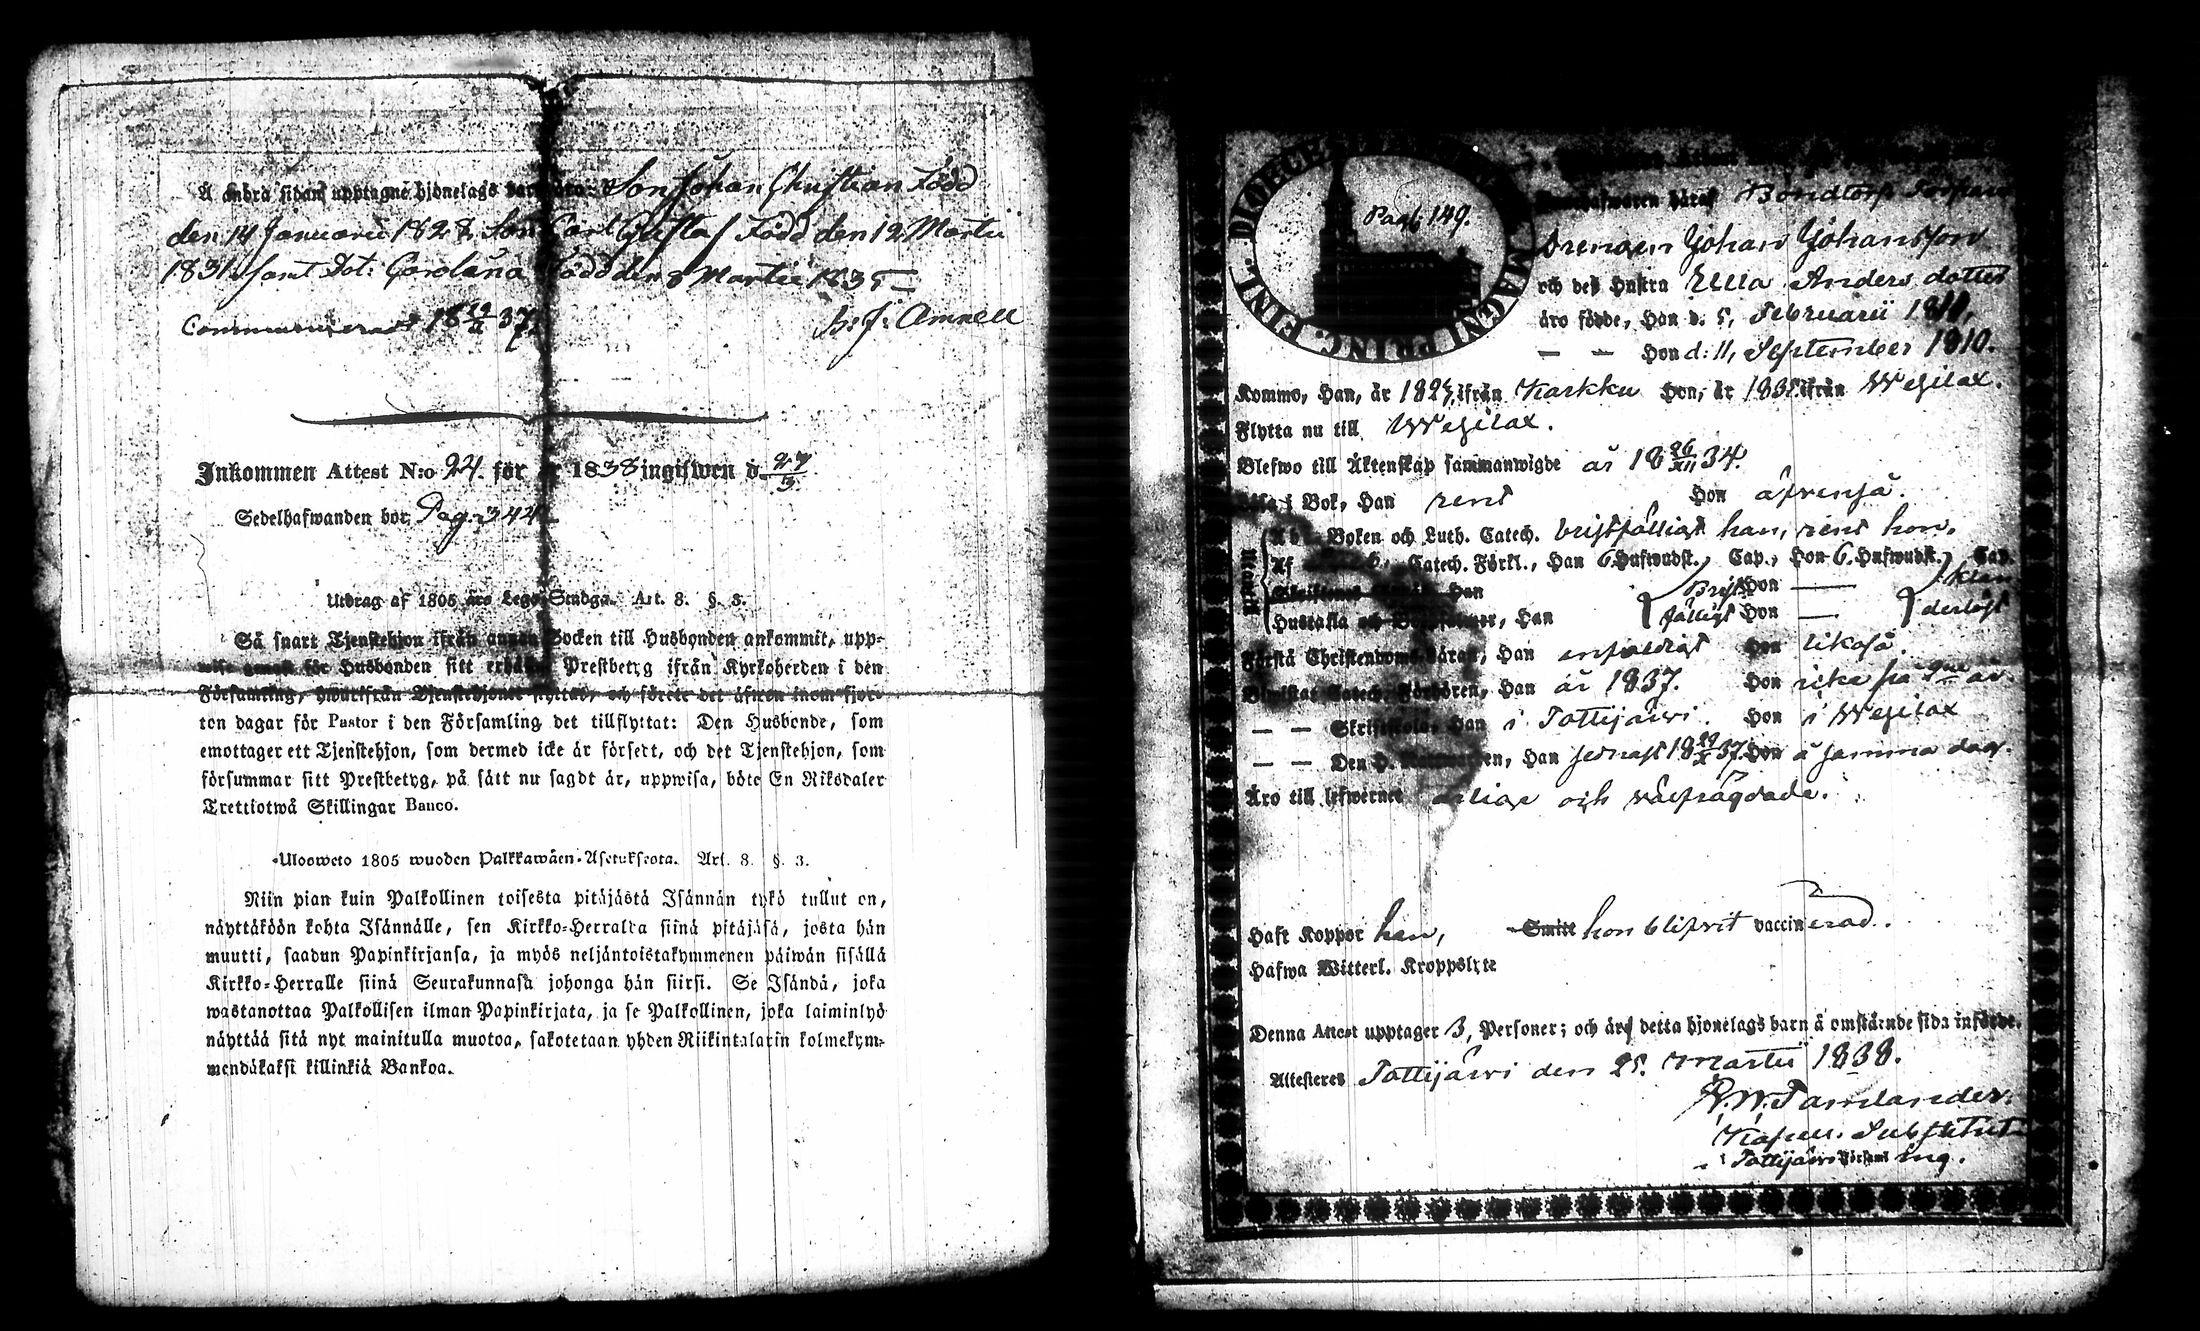 Å andra sidan upptagne hjonelags barn äro: Son Johan Christian Född
den 14 Januarii 1828, Son Carl Gustaf Född den 12 Martii
1831 samt Dot: Carolina Född den 8 Martii 1835
Communicerat 18 37
Amnell
Inkommen Attest N:o 24. för år 1838 ingifwen d. 27/3
Sedelhafwanden bor, Pag. 344
Utdrag af 1805 års Lego-Stadga. Art. 8. §. 3.
Så snart Tjenstehjon ifrån annan Socken till Husbonden ankommit, upp-
wise genast för Husbonden sitt erhållna Prestbetyg ifrån Kyrkoherden i den
Församling, hwarifrån Tjenstehjonet flyttat, och förete det äfwen inom fjor-
ton dagar för Pastor i den Församling det tillflyttat: Den Husbonde, som
emottager ett Tjenstehjon, som dermed icke är försett, och det Tjenstehjon, som
försummar sitt Prestbetyg, på sätt nu sagdt är, uppwisa, böte En Riksdaler
Trettiotwå Skillingar Banco.
Uloosweto 1805 wuoden Palkkawäen-Asetuksesta. Art. 8. §. 3.
Niin pian kuin Palkollinen toisesta pitäjästä Isännän tykö tullut on,
näyttäköön kohta Isännälle, sen Kirkko-Herralta siinä pitäjäsä, josta hän
muutti, saadun Papinkirjansa, ja myös neljäntoistakymmenen päiwän sisällä
Kirkko-Herralle siinä Seurakunnasa johonga hän siirsi. Se Isändä, joka
wastanottaa Palkollisen ilman Papinkirjata, ja se Palkollinen, joka laiminlyö
näyttää sitä nyt mainitulla muotoa, sakotetaan yhden Riikintalarin kolmekym-
mendäkaksi killinkiä Bankoa.
DIOECES MAGNI PRINC. FINL.
Pag. 149.
Bondtorp
Drengen Johan Johansson
och deß Hustru Ulla Anders dotter
äro födde, Han d. 5, Februarii 1811,
— — Hon d: 11, September 1810.
Kommo, Han, år 182 ifrån Karkku Hon, år 183 ifrån Wesilax.
Flytta nu till Wesilax.
Blefwo till Äktenskap sammanwigde år 18 26/XII 34.
i Bok, Han rent Hon äfvenså.
Utantill
A b c Boken och Luth. Catech. bristfälligt han, rent hon.
Af Catech. Förkl., Han 6 Hufwudst., Cap., Hon 6. Hufwudst., Cap.
Han Brist Hon — klan
Hustafla och Han fälligt Hon — derlöst
Förstå Christendoms läran, Han enfaldigt Hon likaså.
Catech. Förhören, Han år 1837. Hon år.
— — Skriftskola, Han i Tottijärvi. Hon i Wesilax
— — Den H. Nattvarden, Han senast 18 37. Hon å samma dag.
Äro till lefwernet ärlige och välfrägdade.
Haft Koppor han, Smitt hon blifvit vaccinerad.
Hafwa Witterl. Kroppslyte
Denna Attest upptager 3, Personer; och äro detta hjonelags barn å omstående sida införde.
Attesteres Tottijärvi den 25. Martii 1838.
Tamlander.
Kapell. Substitut
i Tottijärvi Församling.